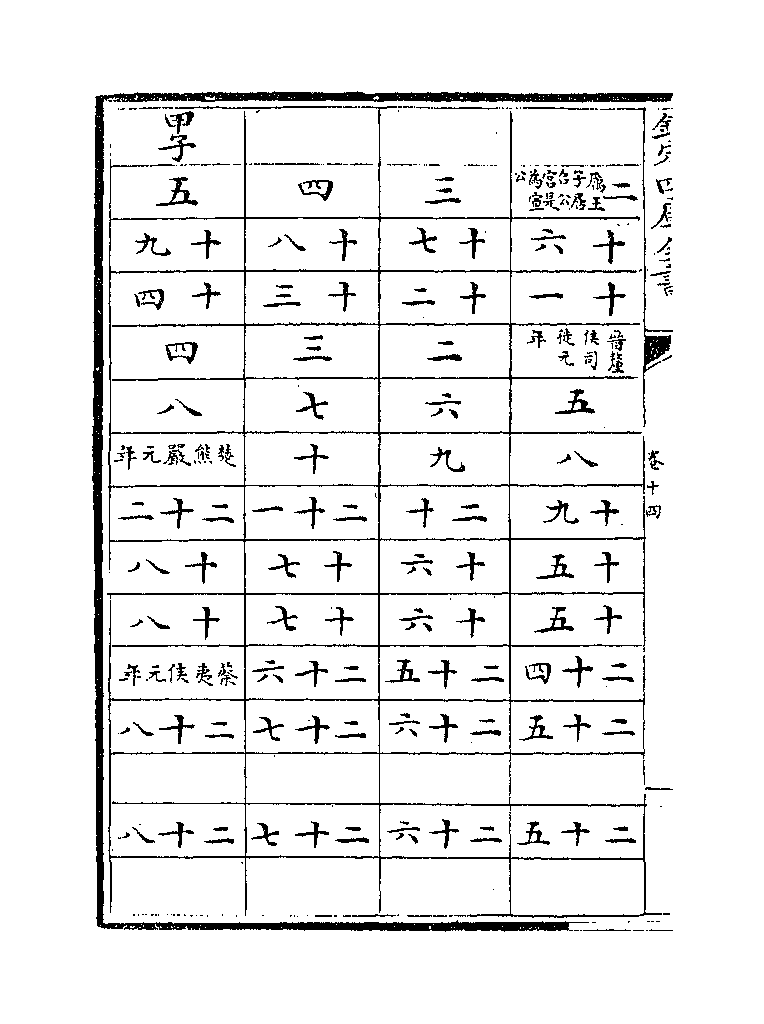 欽定四庫全書
卷十四
二厲王子居召公宮是為宣公
十六
十一
晉釐侯司徒元年
五
八
十九
十五
十五
二十四
二十五
二十五
三
十七
十二
二
六
九
二十
十六
十六
二十五
二十六
二十六
四
十八
十三
三
七
十
二十一
十七
十七
二十六
二十七
二十七
甲子
五
十九
十四
四
八
楚熊嚴元年
二十二
十八
十八
蔡夷侯元年
二十八
二十八